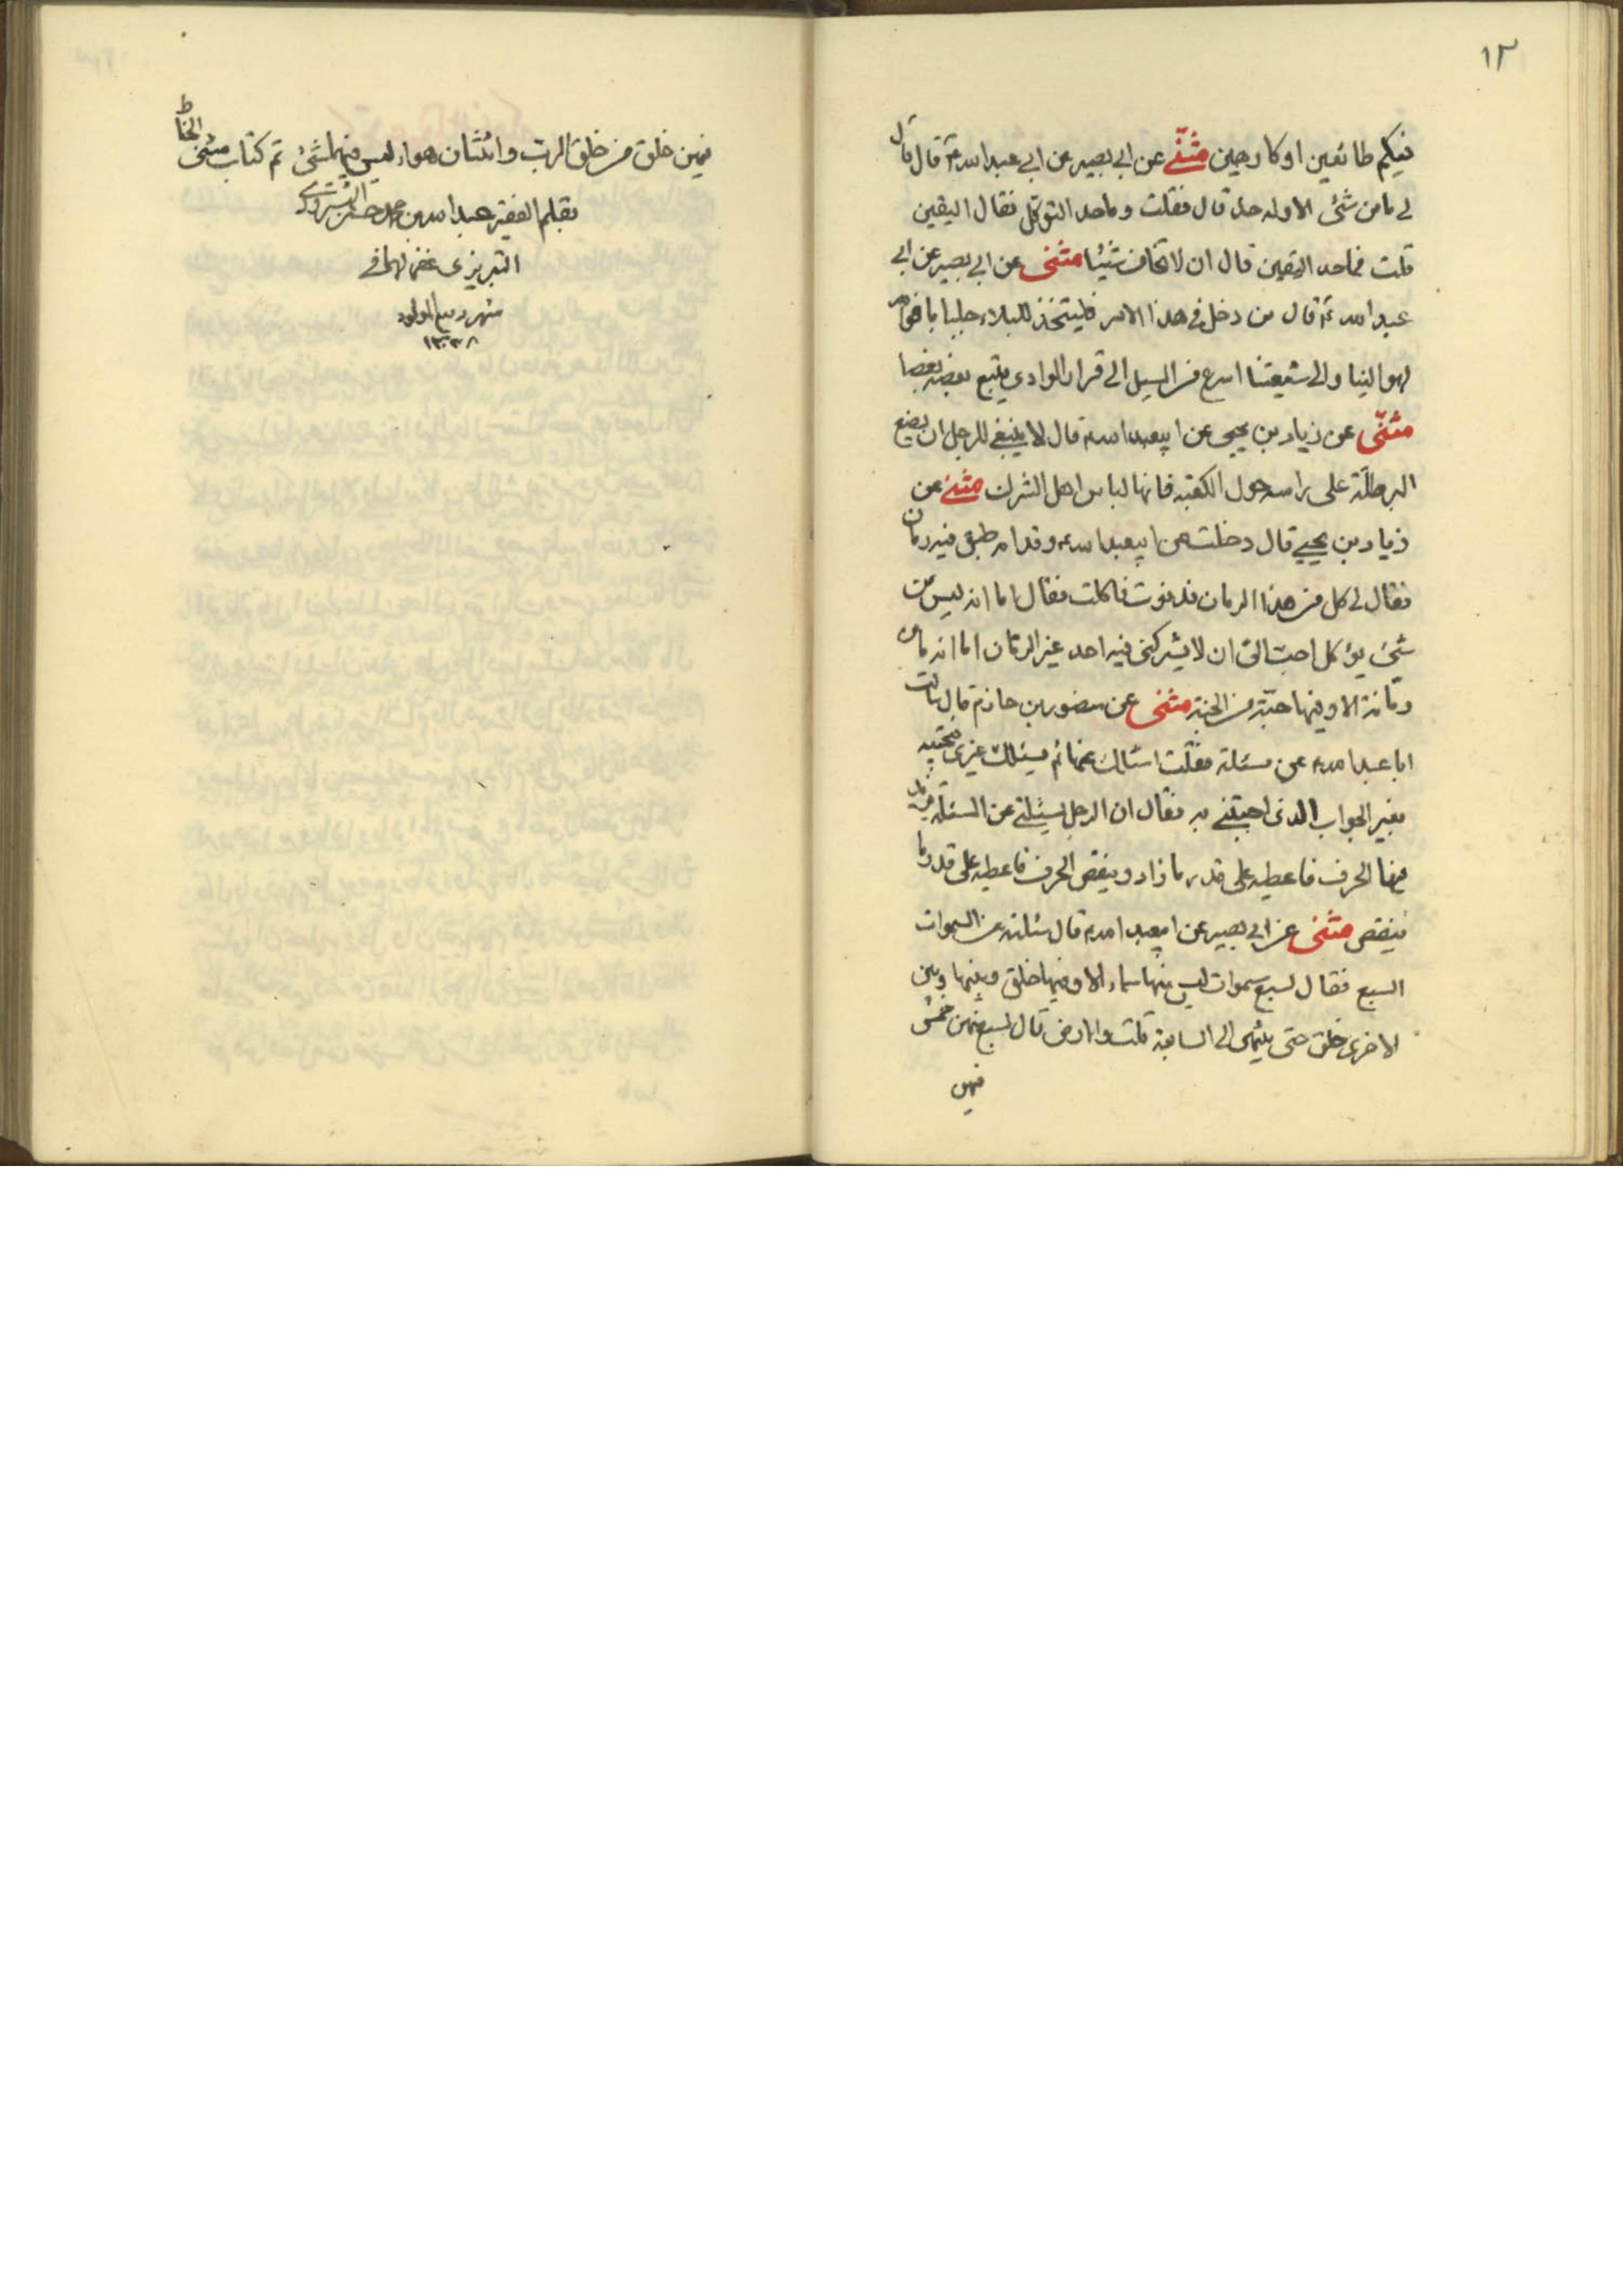 ١٢
فيكم طائعين او كارهين مثنّى عن ابي بصير عن ابي عبد الله ع قال قال
لي ما من شئ الا وله حد قال فقلت وما حد التوكل فقال اليقين
قلت فما حد اليقين قال ان لا تخاف شيئا مثنى عن ابي بصير عن ابي
عبد الله ع قال من دخل في هذا الامر فليتخذ للبلاء جلبابا فوالله
لهو الينا والى شيعتنا اسرع من السيل الى قرار الوادي يتبع بعضه بعضا
مثنّى عن زياد بن يحيى عن ابيعبد الله ع قال لا ينبغي للرجل ان يضع
البرطلّة على راسه حول الكعبة فانها لباس اهل الشرك مثنى عن
زياد بن يحيى قال دخلت عن ابيعبد الله ع وقدامه طبق فيه رمان
فقال لي كل من هذا الرمان فدنوت فاكلت فقال اما انه ليس من
شئ يؤكل احبّ الىّ ان لا يشركني فيه احد غير الرمّان اما انه ما من
رمّانة الا وفيها حبّة من الجنة مثنى عن منصور بن حازم قال سالت
ابا عبد الله ع عن مسئلة فقلت اسئلك عنها ثم يسئلك غيري فتجيبه
بغير الجواب الذى اجبتنى به فقال ان الرجل يسئلني عن المسئلة فيزيد
فيها الحرف فاعطيه على قدر ما زاد وينقص الحرف فاعطيه على قدر ما
ينقص مثنى عن ابي بصير عن ابيعبد الله ع قال سئلته عن السموات
السبع فقال لسبع سموات ليس منها سماء الا وفيها خلق وبينها وبين
الاخرى خلق حتى ينتهى الى السابعة قلت والارض قال سبع منهن خمس
فيهن
فيهن خلق من خلق الربّ واثنتان هواء ليس فيهما شئ تم كتاب مثنى
الحناط
بقلم الفقير عبد الله بن محمد حسن
التبريزى غفر لهما في
شهر ربيع المولود
١٣٣٨